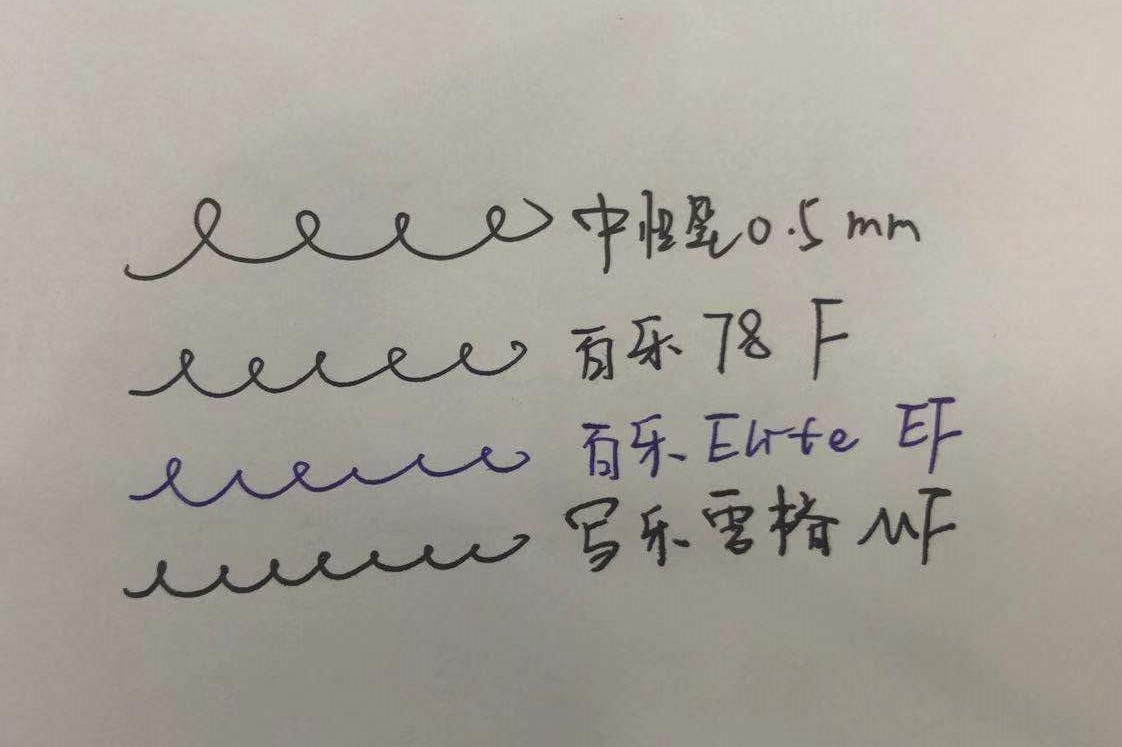 中性笔0.5mm
百乐78 F
百乐Elite EF
写乐雪椿MF